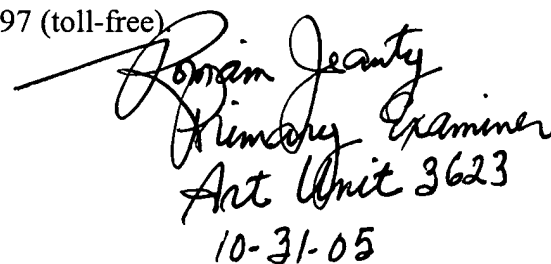 97 (toll-free).
Romain Jeanty
Primary Examiner
Art Unit 3623
10-31-05